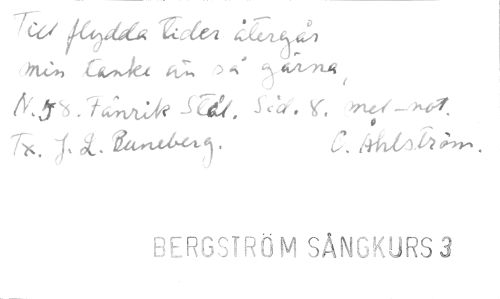 Till flydda tider återgår
min tanke än så gärna,
N. 58. Fänrik Stål. Sid. 8. mel-not.
Tx. J. L. Runeberg. C. Åhlström.
BERGSTRÖM SÅNGKURS 3